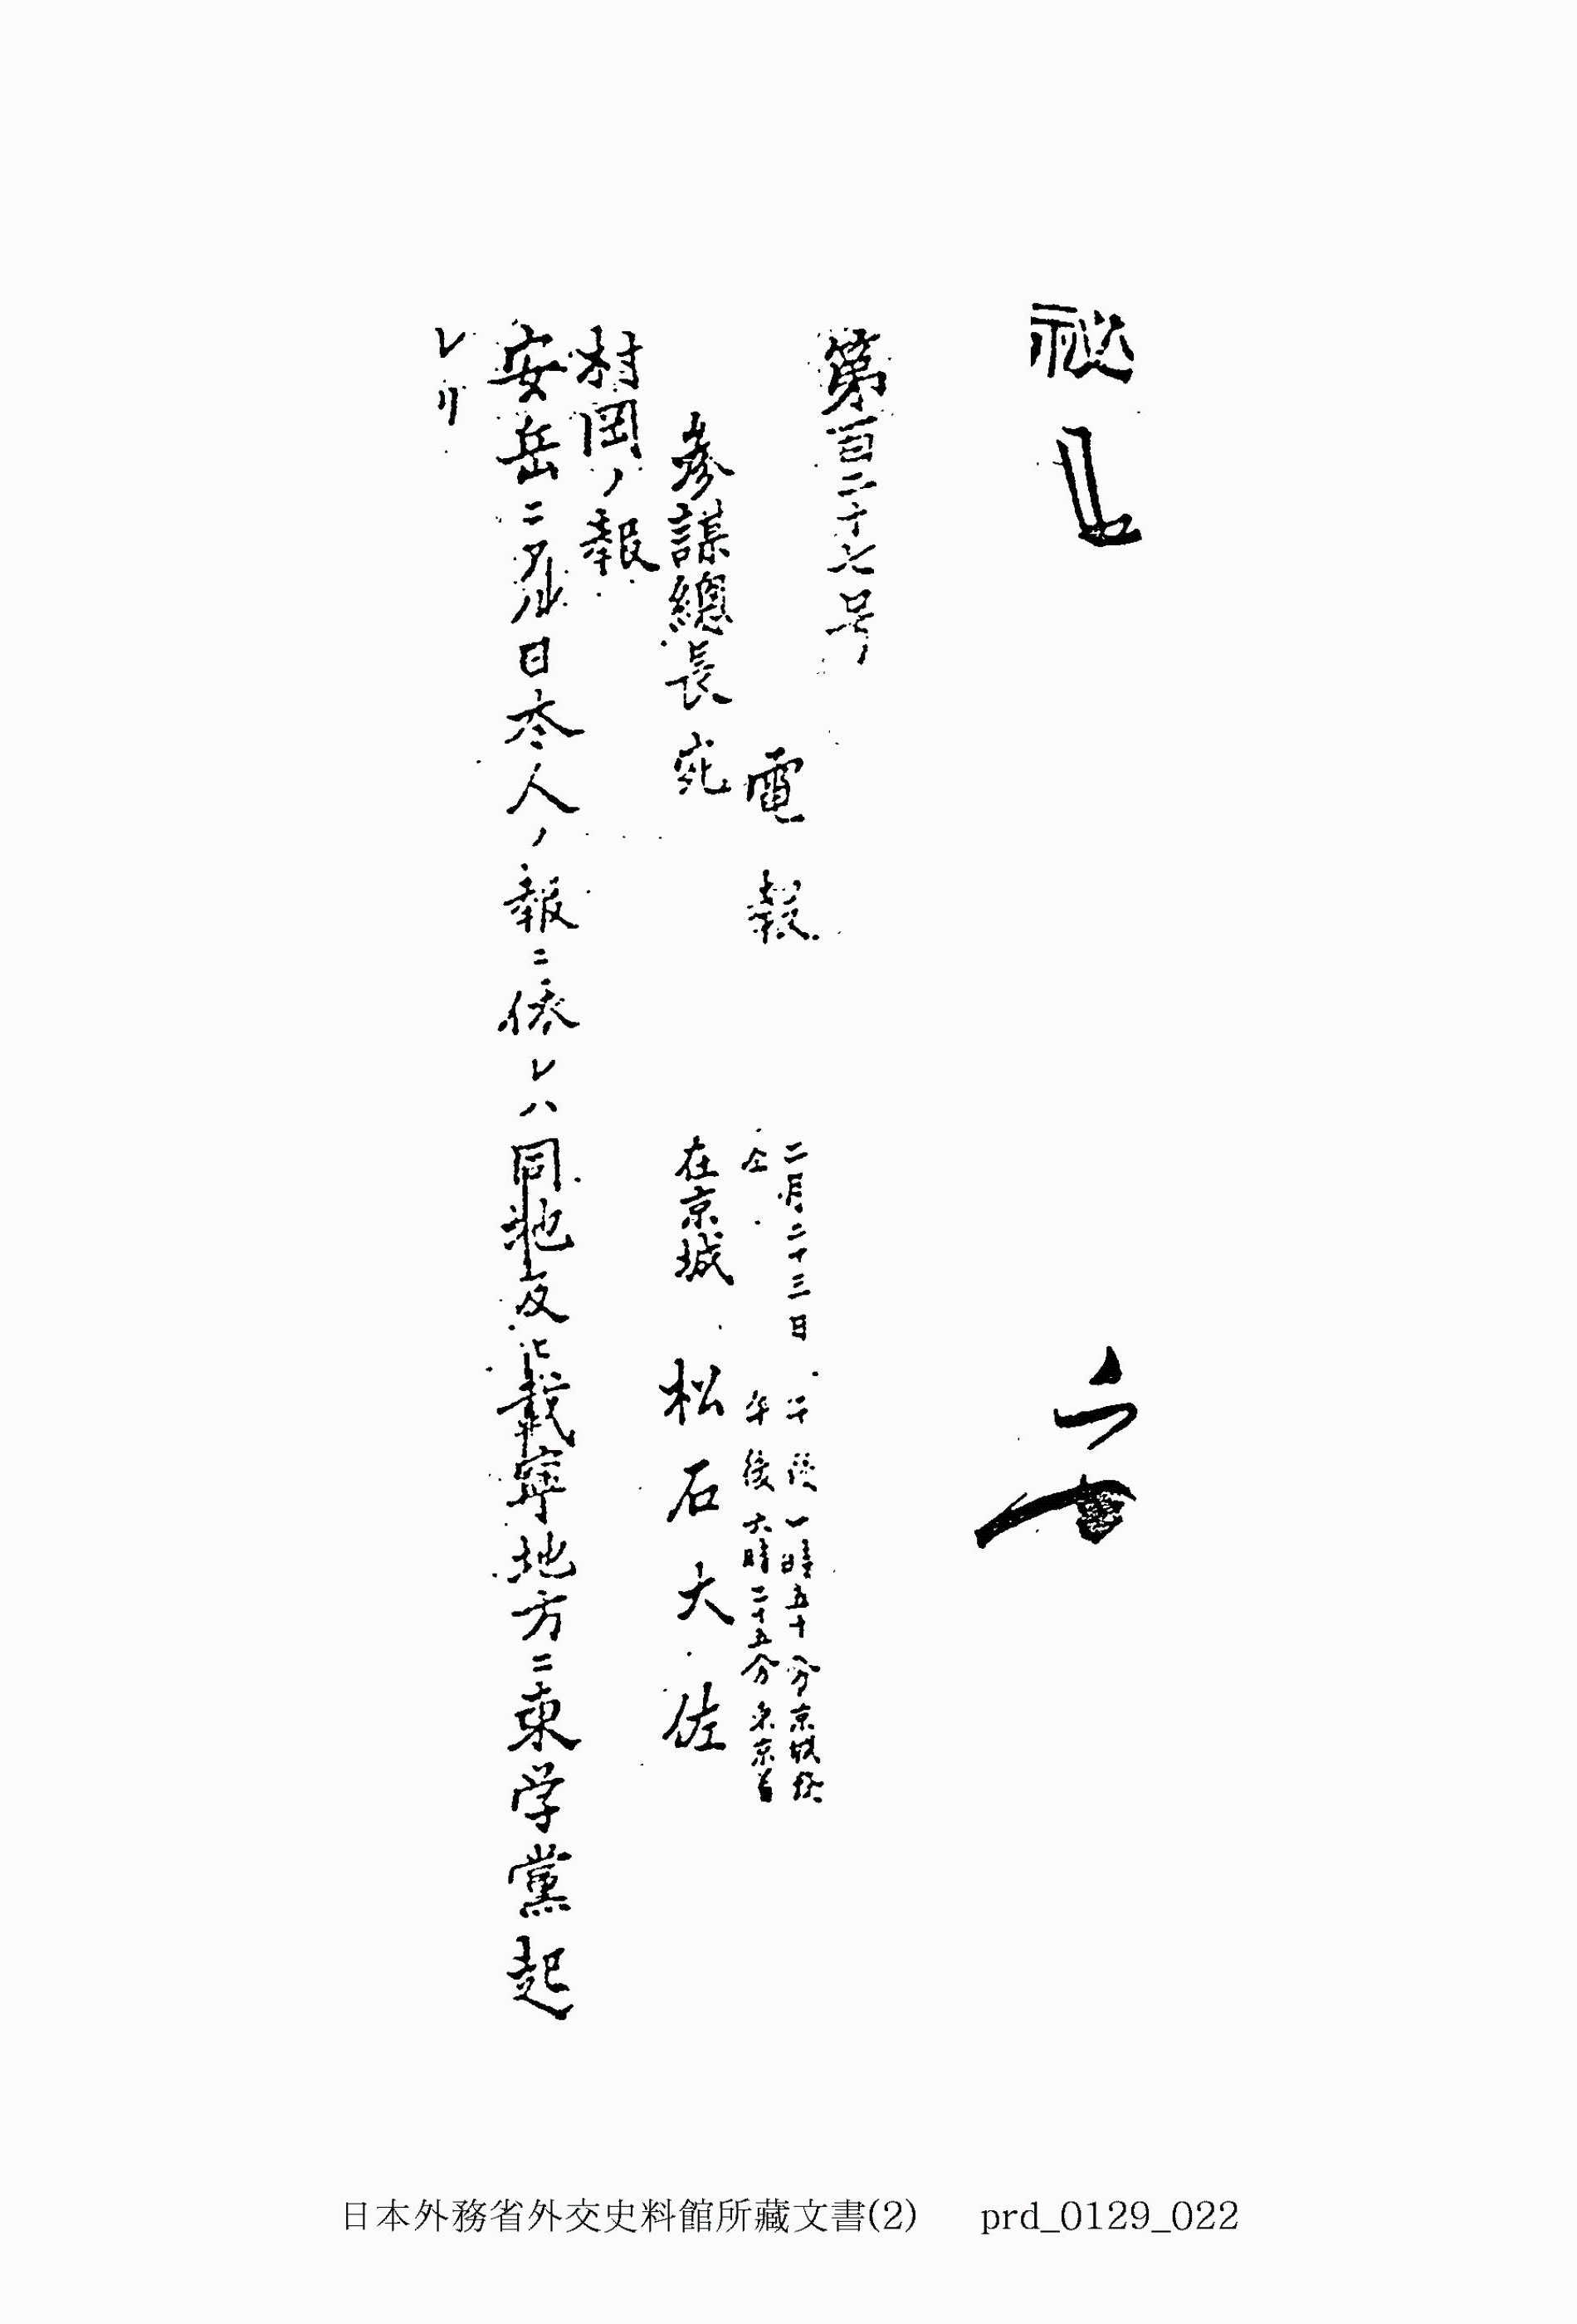 秘
第百二十七号
電報
二月二十三日 午後一時五十分京城発
仝 午後六時二十五分東京着
参謀總長宛
在京城 松石大佐
村岡ノ報
安岳ニアル日本人ノ報ニ依レハ同地及ヒ載寧地方ニ東学黨起
レリ
日本外務省外交史料館所藏文書(2) prd_0129_022